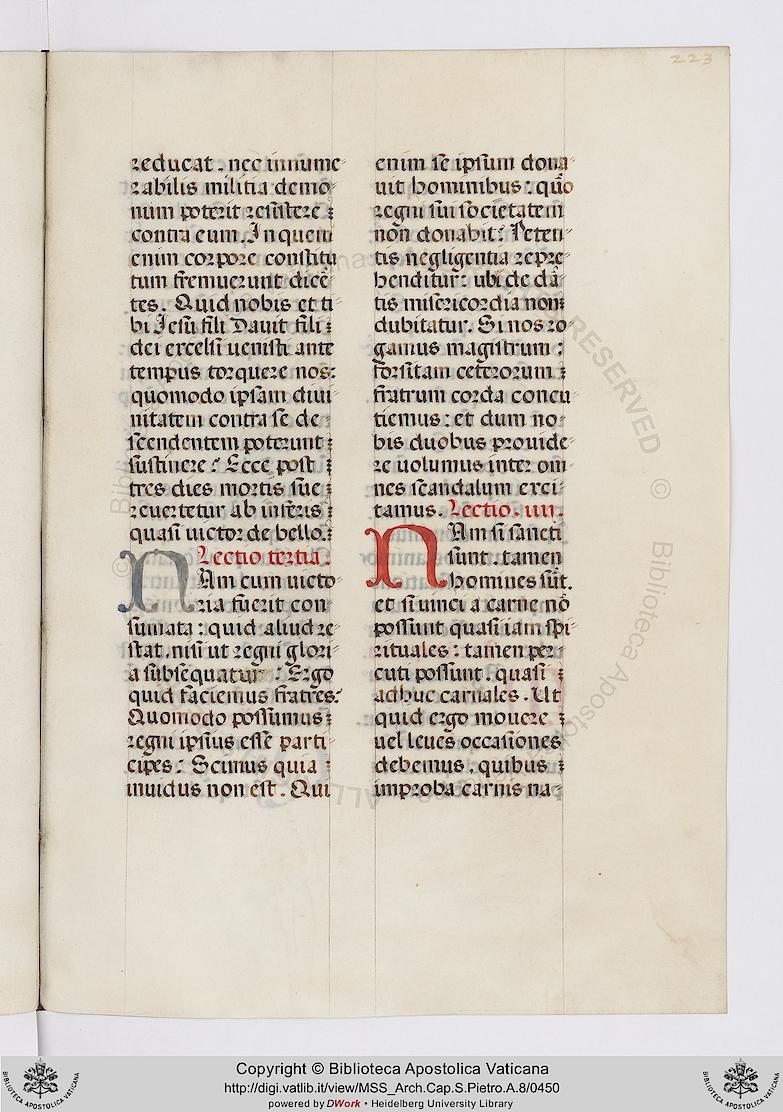 223
reducat. nec innume
rabilis militia demo
num poterit resistere
contra eum. In quem
enim corpore constitu
tum fremuerunt dicẽ
tes. Quid nobis et ti
bi Jesu fili Dauit fili
dei excelsi uenisti ante
tempus torquere nos:
quomodo ipsam diui
nitatem contra se de
scendentem poterunt
sustinere? Ecce post
tres dies mortis sue
reuertetur ab inferis
quasi uictor de bello.
Lectio tertia.
NAm cum uicto
ria fuerit con
sumata: quid aliud re
stat. nisi ut regni glori
a subsequatur? Ergo
quid faciemus fratres?
Quomodo possumus
regni ipsius esse parti
cipes? Scimus quia
inuidus non est. Qui
enim se ipsum dona
uit hominibus: quõo
regni sui societatem
non donabit? Peten
tis negligentia repre
henditur: ubi de dã
tis misericordia non
dubitatur. Si nos ro
gamus magistrum:
forsitam ceterorum
fratrum corda concu
tiemus: et dum no
bis duobus prouide
re uolumus inter om
nes scandalum exci
tamus. Lectio. iiij.
NAm si sancti
sunt. tamen
homines sũt.
et si uinci a carne nõ
possunt quasi iam spi
rituales: tamen per
cuti possunt. quasi
adhuc carnales. Ut
quid ergo mouere
uel leues occasiones
debemus. quibus
improba carnis na
Copyright © Biblioteca Apostolica Vaticana
http://digi.vatlib.it/view/MSS_Arch.Cap.S.Pietro.A.8/0450
powered by DWork • Heidelberg University Library
BIBLIOTECA APOSTOLICA VATICANA
BIBLIOTECA APOSTOLICA VATICANA